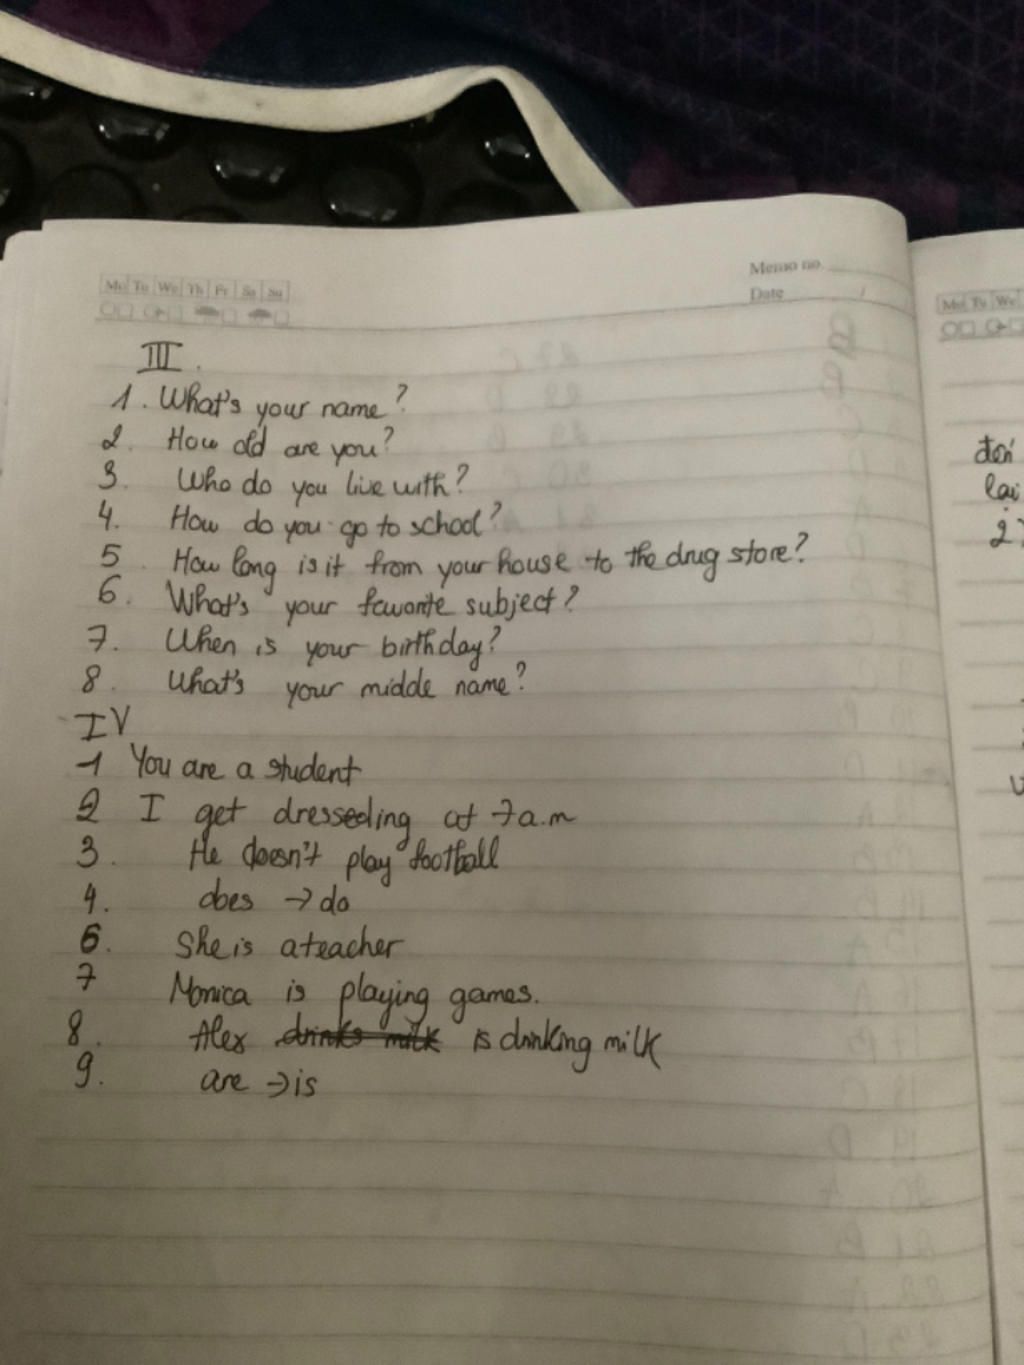 Mo Tu We Th Fr Sa Su
Memo no.
Date /
III.
1. What's your name?
2. How old are you?
3. Who do you live with?
4. How do you go to school?
5 How long is it from your house to the drug store?
6. What's your favorite subject?
7. When is your birthday?
8. What's your midde name?
IV
1 You are a student
2 I get dresseding at 7a.m
3. He doesn't play football
4. does → do
6. She is a teacher
7 Monica is playing games.
8. Alex drinks milk is drinking milk
9. are → is
Mo Tu We
đến
lại
2